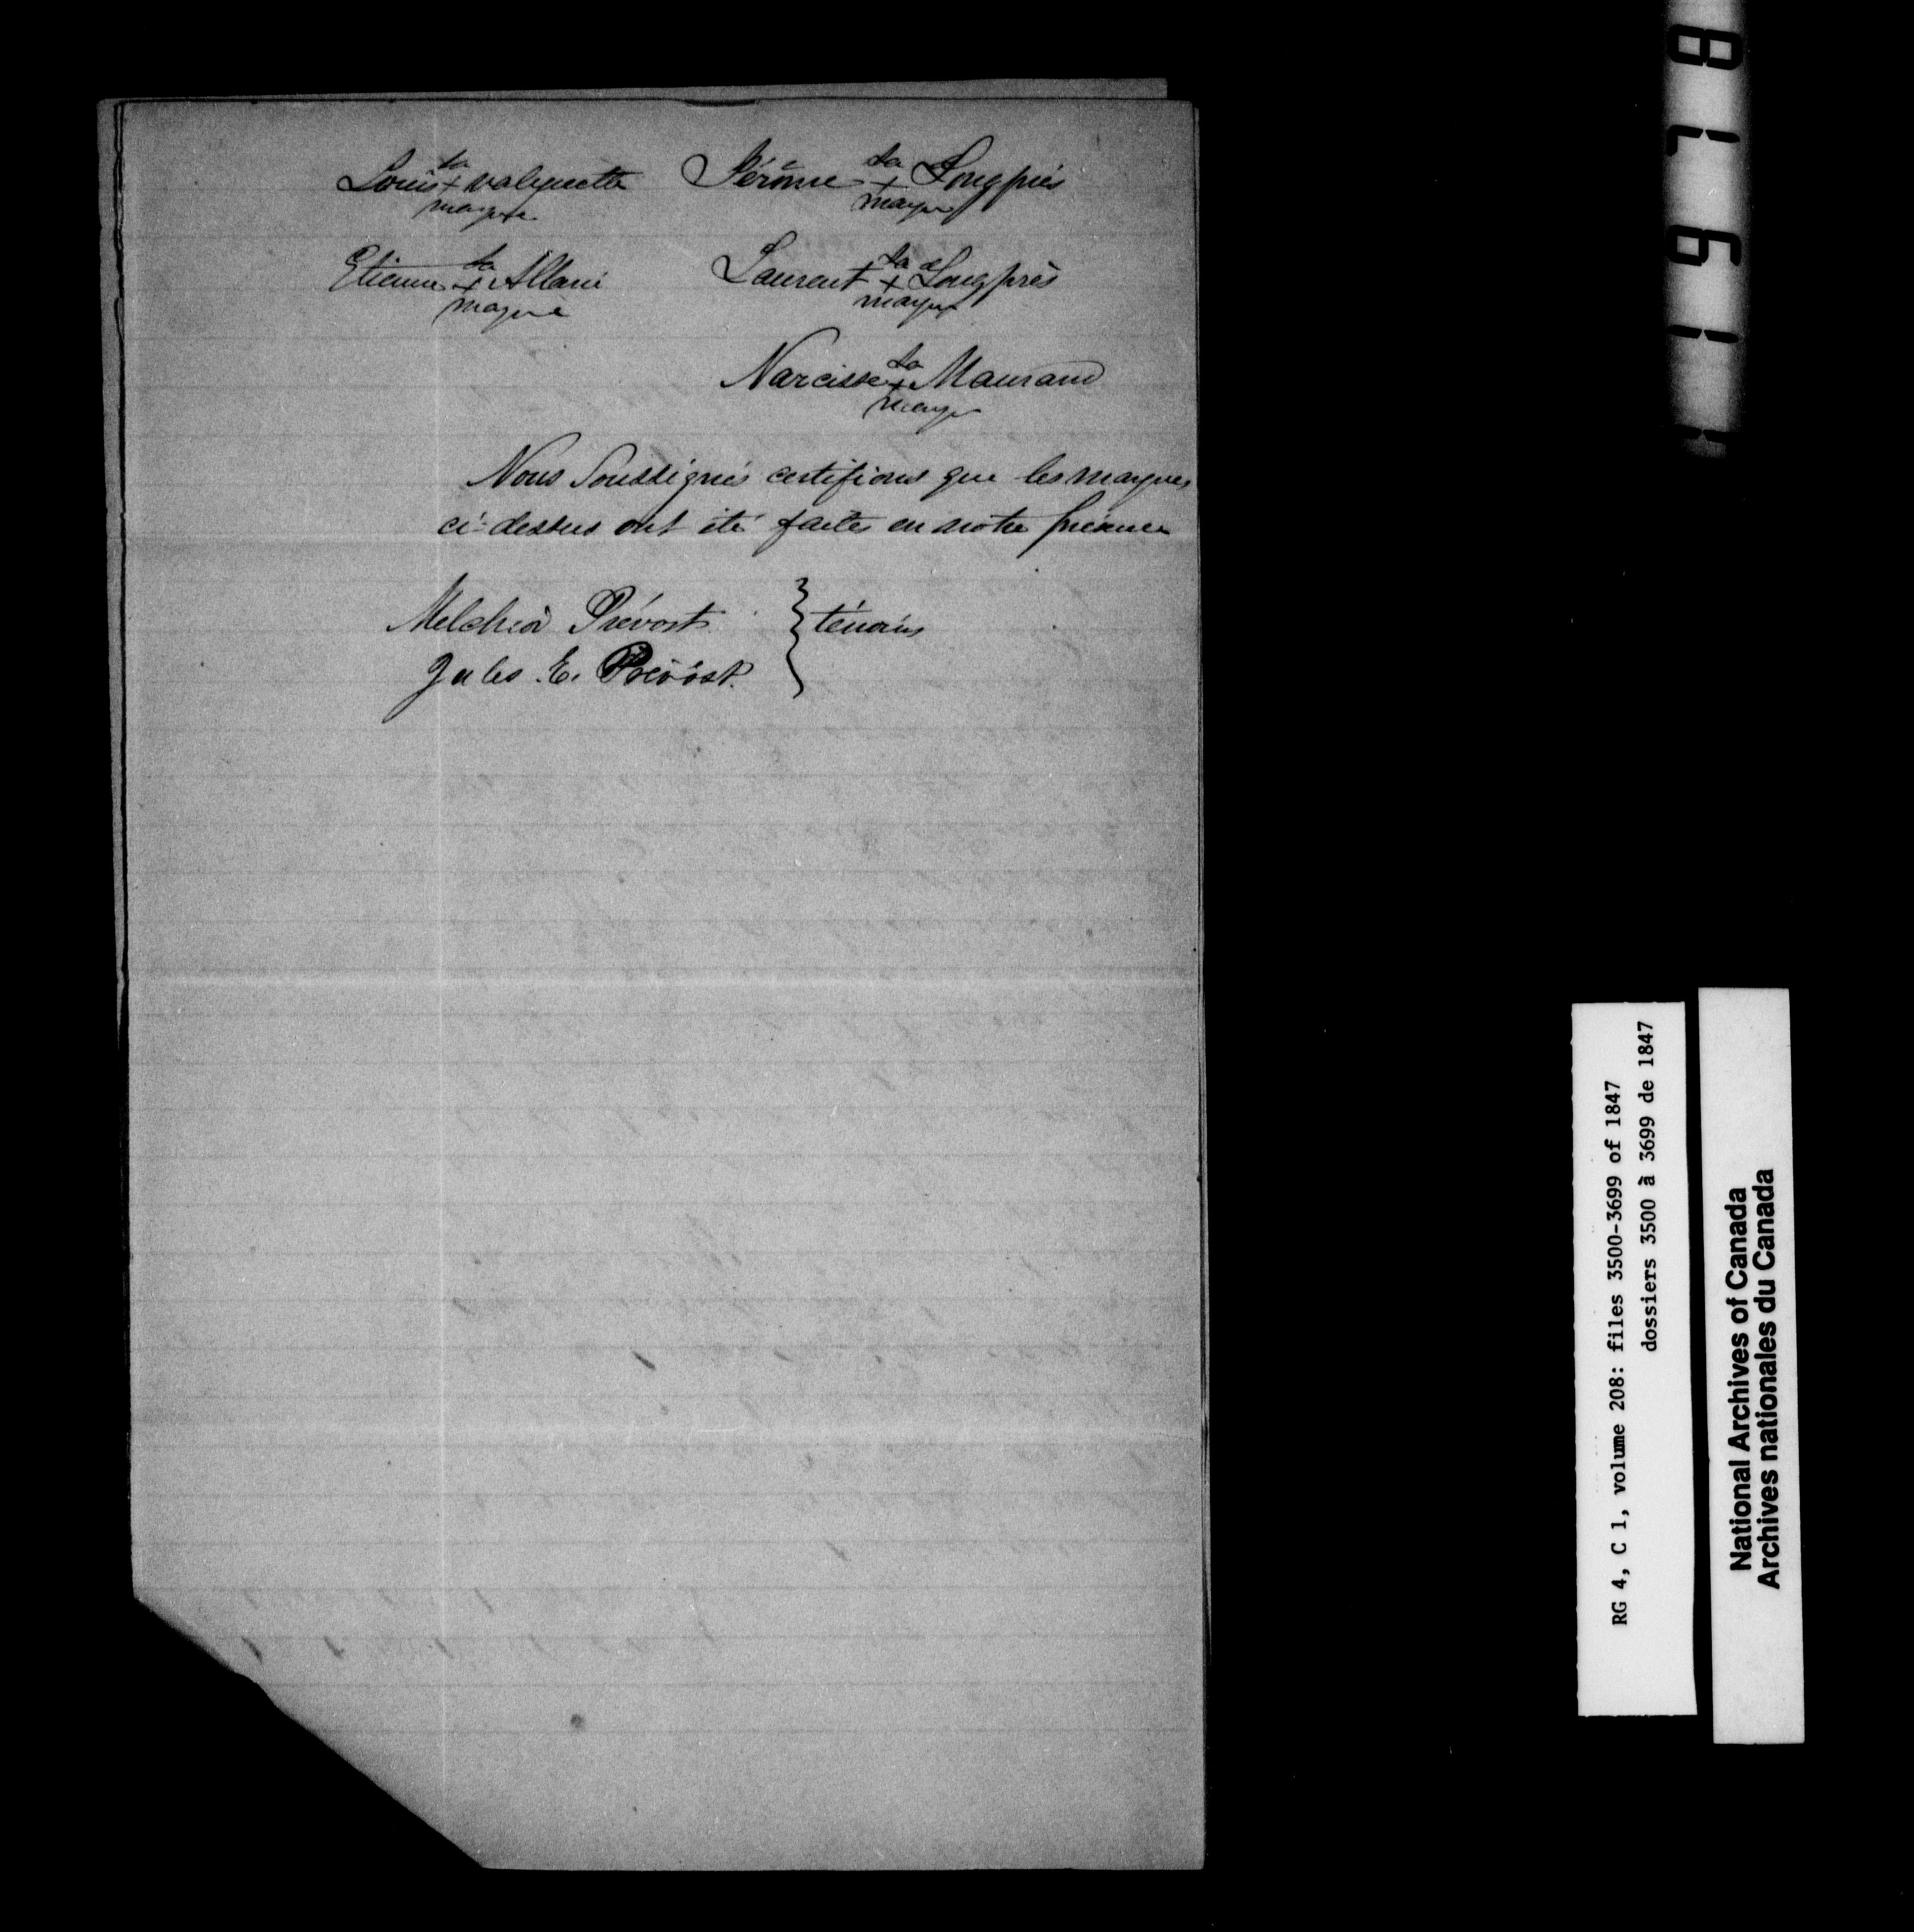 Louis sa + marque valiquette Jérôme sa + marque Longprés
Etienne sa + marque Allari Laurent sa + marque Longprés
Narcisse sa + marque Maurand
Nous Soussignés certifions que les marques
ci-dessus ont été faites en notre présence
Melchior Prévost } témoins
Jules E. Prévost.
1 1 6 7 8
RG 4, C 1, volume 208: files 3500-3699 of 1847
dossiers 3500 à 3699 de 1847
National Archives of Canada
Archives nationales du Canada